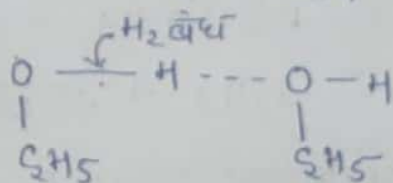 H₂ बंध
O — H --- O — H
| |
C₂H₅ C₂H₅